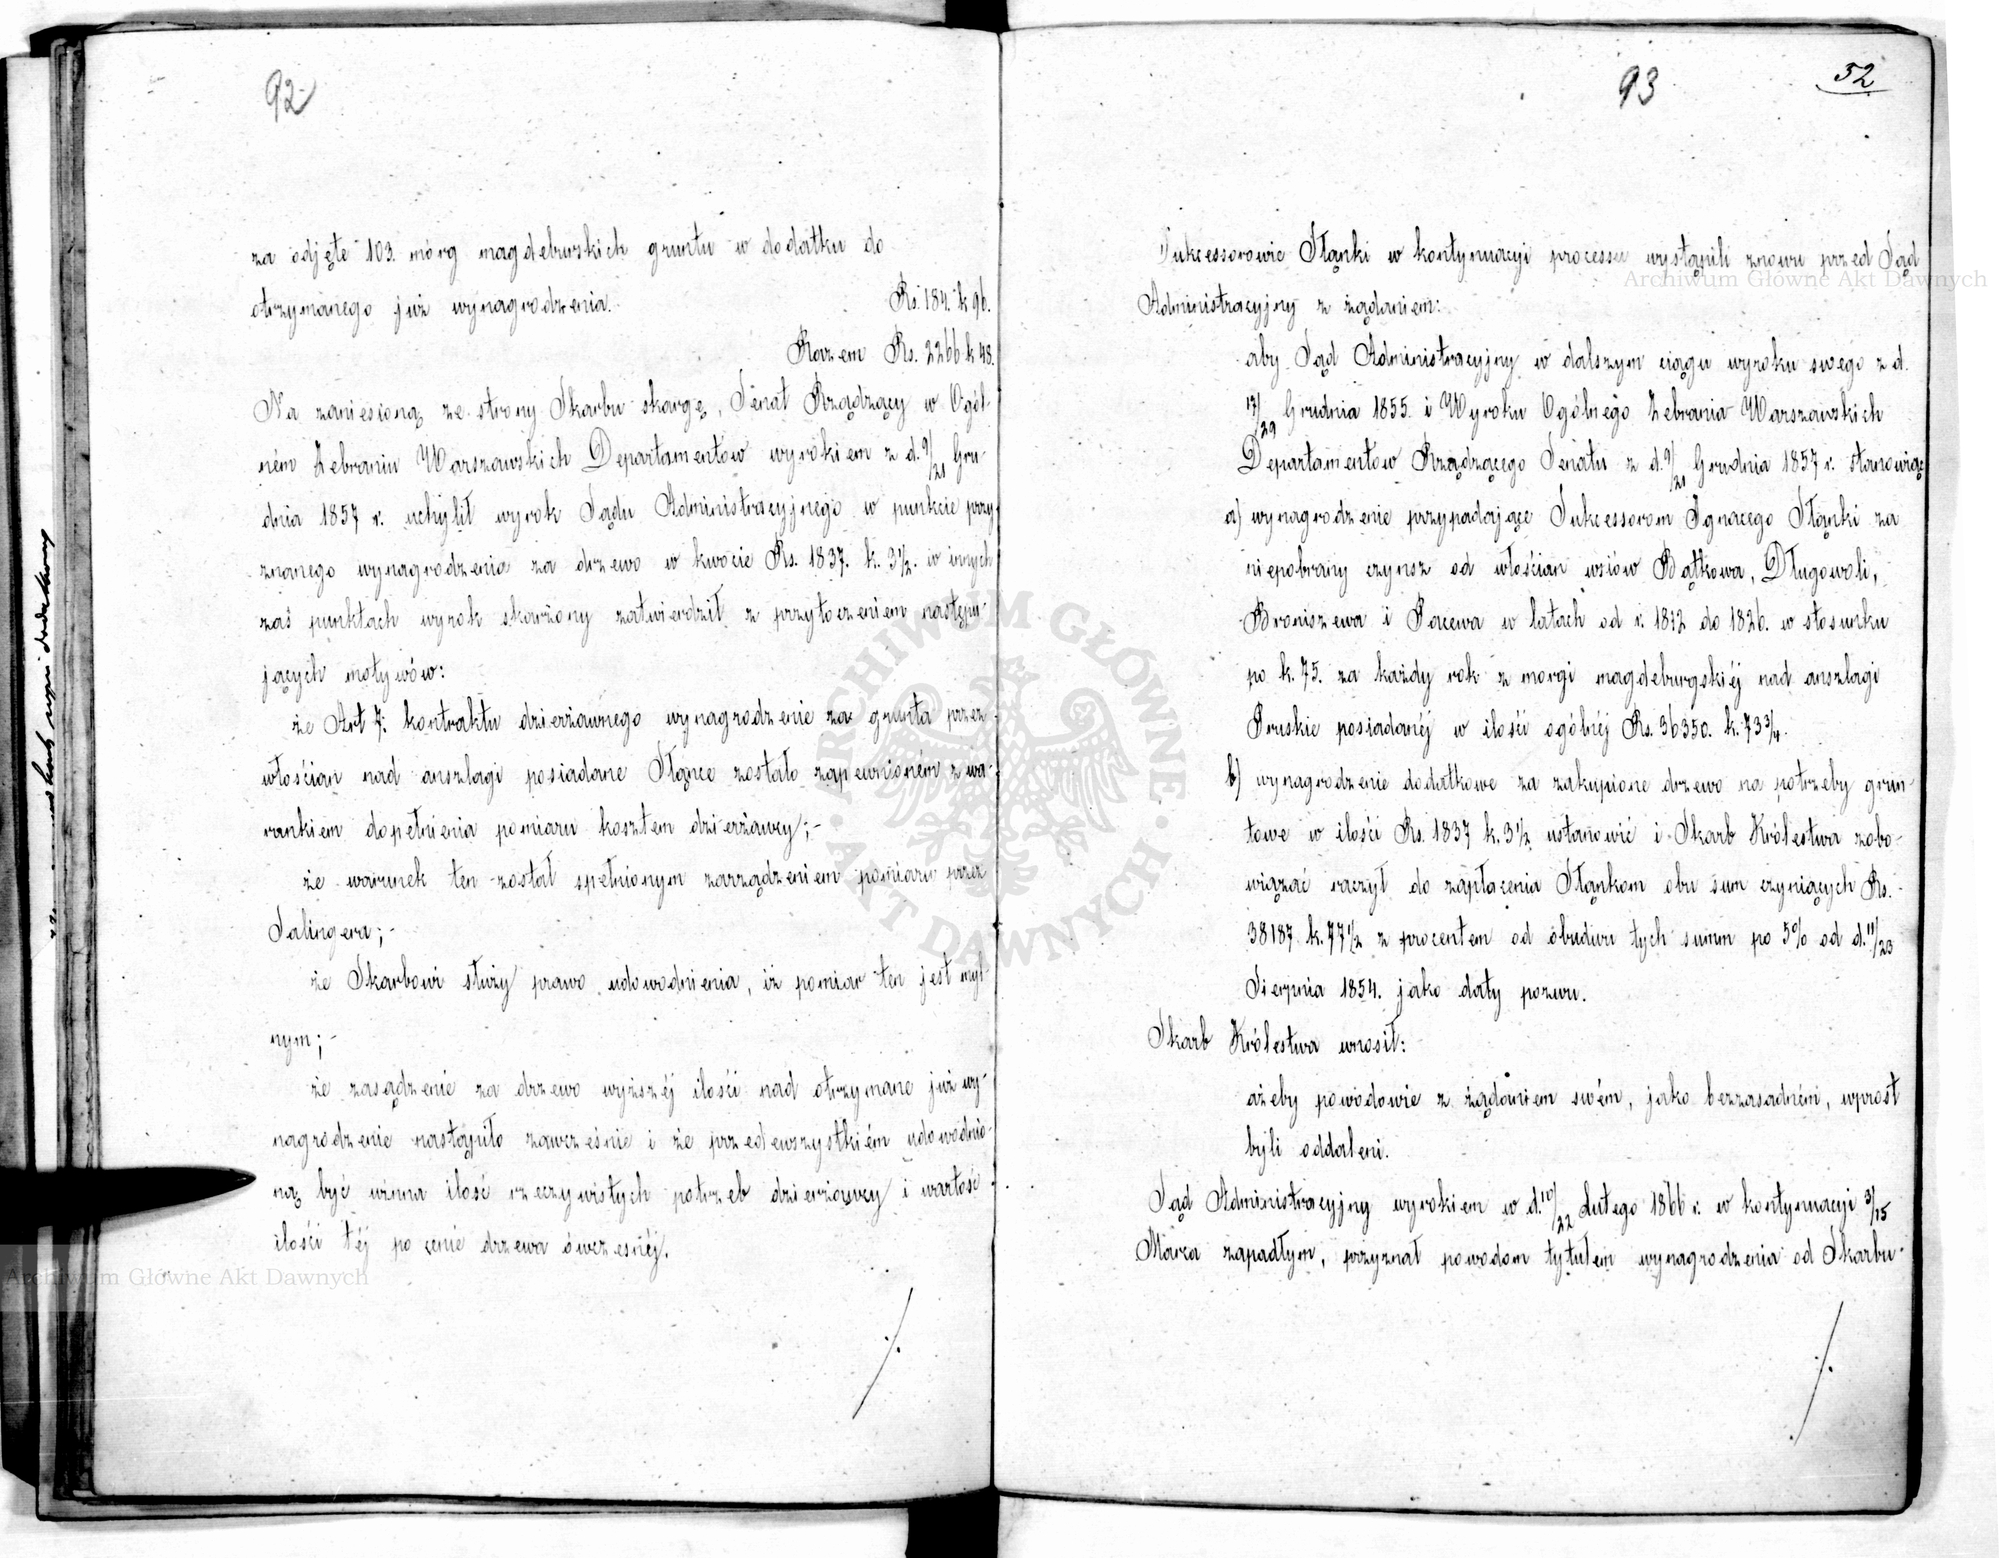 92
za odjęte 103. mórg magdeburskich gruntu w dodatku do
otrzymanego już wynagrodzenia. Rs. 184. k 96.
Razem Rs. 2266 k 48.
Na zaniesioną ze strony Skarbu skargę, Senat Rządzący w Ogól-
ném Zebraniu Warszawskich Departamentów wyrokiem z d. 9/21 Gru-
dnia 1857 r. uchylił wyrok Sądu Administracyjnego w punkcie przy-
znanego wynagrodzenia za drzewo w kwocie Rs. 1837. k. 3½. w innych
zaś punktach wyrok skarżony zatwierdził z przytoczeniem następu-
jących motywów:
że Art 7. kontraktu dzierżawnego wynagrodzenie za grunta przez
włościan nad anszlagi posiadane Słance zostało zapewnioném z wa-
runkiem dopełnienia pomiaru kosztem dzierżawcy;-
że warunek ten został spełnionym zarządzeniem pomiaru przez
Salingera;-
że Skarbowi służy prawo udowodnienia, iż pomiar ten jest myl-
nym;-
że zasądzenie za drzewo wyższéj ilości nad otrzymane już wy-
nagrodzenie nastąpiło zawcześnie i że przedewszystkiém udowodnio-
ną być winna ilość rzeczywistych potrzeb dzierżawcy i wartość
ilości téj po cenie drzewa ówczesnéj.
./.
93
52
Sukcessorowie Słąnki w kontynuacyi processu wystąpili znowu przed Sąd
Administracyjny z żądaniem:
aby Sąd Administracyjny w dalszym ciągu wyroku swego z d.
17/29 Grudnia 1855. i Wyroku Ogólnego Zebrania Warszawskich
Departamentów Rządzącego Senatu z d. 9/21 Grudnia 1857 r. stanowiąc
a) wynagrodzenie przypadające Sukcessorom Ignacego Słąnki za
niepobrany czynsz od włościan wsiów Bątkowa, Długowoli,
Broniszewa i Pacewa w latach od r. 1812 do 1826. w stosunku
po k. 75. za każdy rok z morgi magdeburgskiéj nad anszlagi
Pruskie posiadanéj w ilości ogólnéj Rs. 36350. k. 73¾.
b) wynagrodzenie dodatkowe za zakupione drzewo na potrzeby grun-
towe w ilości Rs. 1837 k. 3½ ustanowić i Skarb Królestwa zobo-
wiązać raczył do zapłacenia Słąnkom obu sum czyniących Rs.
38187 k. 77½ z procentem od obudwu tych summ po 5% od d. 11/23
Sierpnia 1854. jako daty pozwu.
Skarb Królestwa wnosił:
ażeby powodowie z żądaniem swém, jako bezzasadném, wprost
byli oddaleni.
Sąd Administracyjny wyrokiem w d. 10/22 Lutego 1866 r. w kontynuacyi 3/15
Marca zapadłym, przyznał powodom tytułem wynagrodzenia od Skarbu
./.
Archiwum Główne Akt Dawnych
Archiwum Główne Akt Dawnych
ARCHIWUM GŁÓWNE · AKT DAWNYCH ·